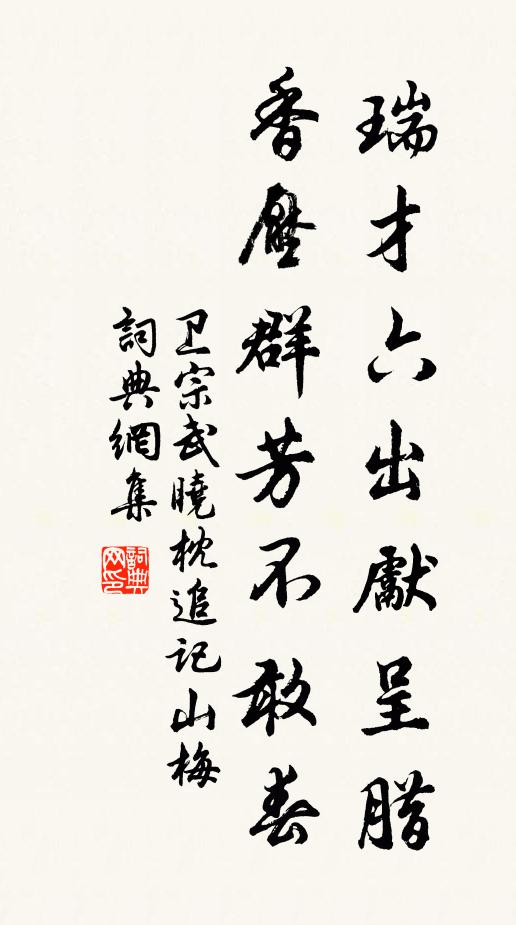 瑞才六出獻呈腊
香壓群芳不敢春
卫宗武曉枕追记山梅
詞典網集
詞典网印